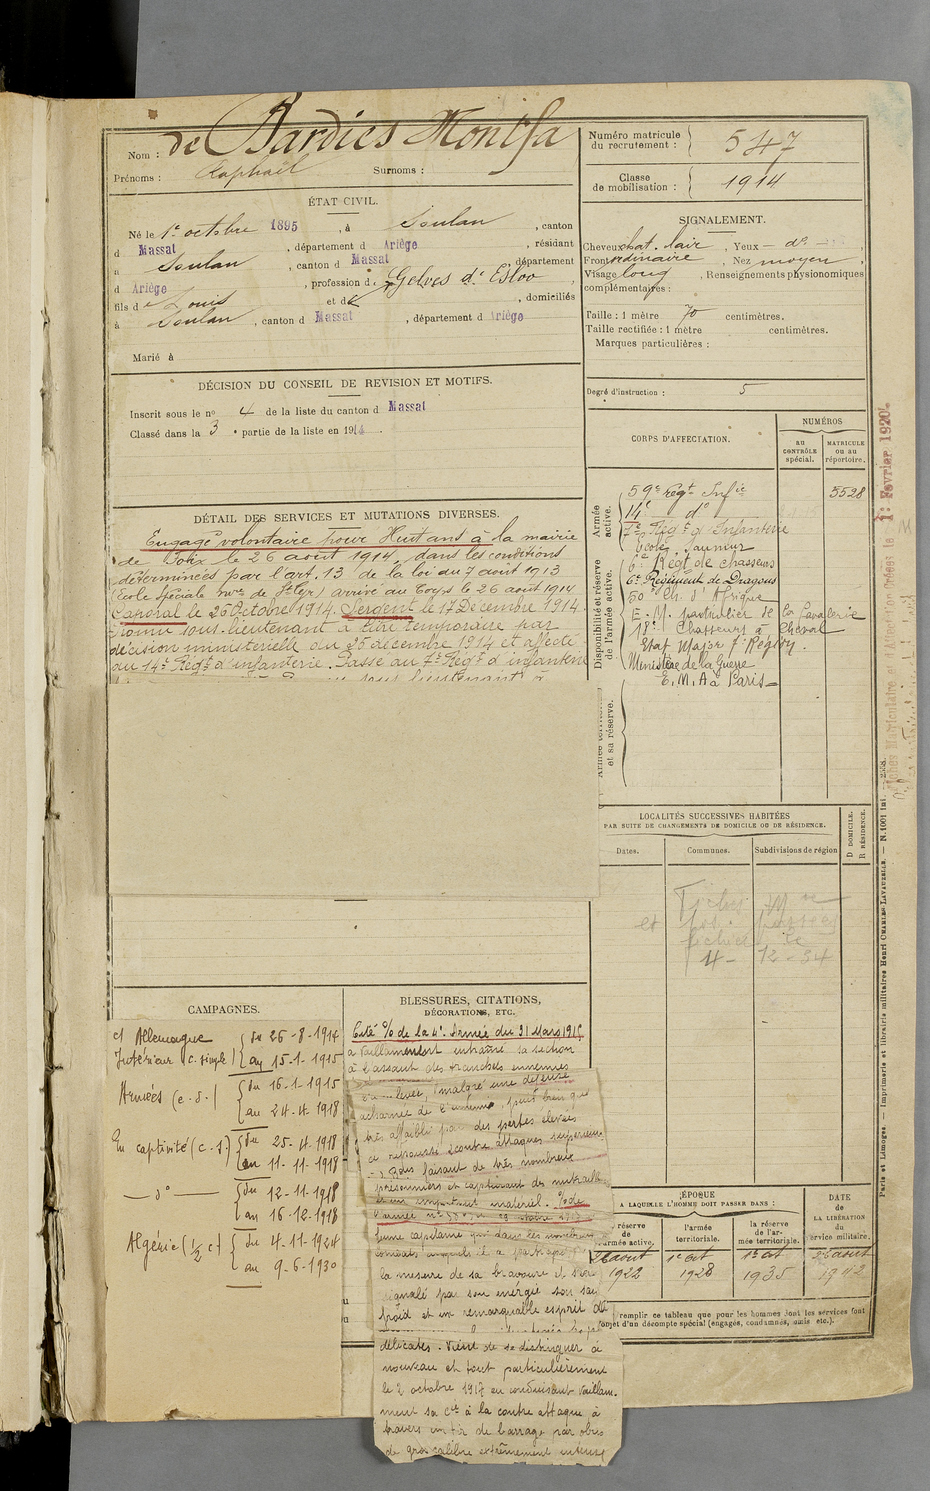 Nom : de Bardies Montfa
Prénoms : Raphaël Surnoms :
ÉTAT CIVIL.
Né le 1er octobre 1895, à Soulan, canton
d Massat, département d Ariège, résidant
à Soulan, canton d Massat département
d Ariège, profession d
fils de Louis et de , domiciliés
à Soulan, canton d Massat, département d Ariège
Marié à
DÉCISION DU CONSEIL DE REVISION ET MOTIFS.
Inscrit sous le no 4 de la liste du canton d Massat
Classé dans la 3e partie de la liste en 191
DÉTAIL DES SERVICES ET MUTATIONS DIVERSES.
Engagé volontaire pour Huit ans à la mairie
de Foix le 26 août 1914, dans les conditions
déterminées par l'art. 13 de la loi du 7 août 1913
(Ecole spéciale mre de St Cyr) arrivé au Corps le 26 août 1914
Caporal le 26 Octobre 1914. Sergent le 14 Décembre 1914.
Promu sous-lieutenant à titre temporaire par
décision ministérielle du 26 décembre 1914 et affecté
au 14e Régt d'infanterie. Passé au 7e Régt d'infanterie
sous lieutenant à
CAMPAGNES.
ct Allemagne
Intérieur (c. simple) du 26-8-1914
au 15-1-1915
Armées (c. d.) du 16-1-1915
au 24-4-1918
En captivité (c. s.) du 25-4-1918
au 11-11-1918
— do — du 12-11-1918
au 16-12-1918
Algérie (1/2 c) du 4-11-1924
au 9-6-1930
BLESSURES, CITATIONS,
DÉCORATIONS, ETC.
Cité O/ de la 4e Armée du 31 Mars 1915
a vaillamment entraîné sa section
à l'assaut des tranchées ennemies
enlevée, malgré une défense
acharnée de l'ennemi, peut bien que
très affaibli par des pertes élevées
a repoussé contre attaques
faisant de très nombreux
prisonniers et capturant des mitraille
et un important matériel. O/ de
l'armée
Jeune capitaine qui dans les nombreux
combats auxquels il a participé
la mesure de sa bravoure et s'est
signalé par son énergie son sang
froid et un remarquable esprit de
délicates. Vient de se distinguer à
nouveau et tout particulièrement
le 2 octobre 1917 en conduisant vaillam-
ment sa Cie à la contre attaque à
travers un tir de barrage par obus
de gros calibre extrêmement intense
Numéro matricule
du recrutement : 547
Classe
de mobilisation : 1914
SIGNALEMENT.
Cheveux chat. clair, Yeux — do —
Front ordinaire, Nez moyen,
Visage long, Renseignements physionomiques
complémentaires :
Taille : 1 mètre 70 centimètres.
Taille rectifiée : 1 mètre centimètres.
Marques particulières :
Degré d'instruction : 5
CORPS D'AFFECTATION.
NUMÉROS
au
CONTRÔLE
spécial.
MATRICULE
ou au
répertoire.
Armée
active.
59e Régt Infie 5528
14e do
7e Rég t d'Infanterie
Ecole Saumur
Disponibilité et réserve
de l'armée active.
6e Regt de chasseurs
6e Régiment de Dragons
Ch. d'Afrique
E.-M. particulier de la Cavalerie
18e Chasseurs à Cheval
Etat Major 7e Région.
Ministère de la Guerre
E. M. A à Paris
Armée territoriale
et sa réserve.
LOCALITÉS SUCCESSIVES HABITÉES
PAR SUITE DE CHANGEMENTS DE DOMICILE OU DE RÉSIDENCE.
Dates.
Communes.
Subdivisions de région
D DOMICILE.
R RÉSIDENCE.
et
le
4-12-34
ÉPOQUE
A LAQUELLE L'HOMME DOIT PASSER DANS :
DATE
de
LA LIBÉRATION
du
service militaire.
réserve
de
armée active.
l'armée
territoriale.
la réserve
de l'ar-
mée territoriale.
26 aout
1922
1er oct
1928
1er oct
1935
26 aout
1942
remplir ce tableau que pour les hommes dont les services font
l'objet d'un décompte spécial (engagés, condamnés, omis etc.).
1er Fevrier 1920
Paris et Limoges. — Imprimerie et librairie militaires Henri CHARLES-LAVAUZELLE. — N. 1001 int. — 258.